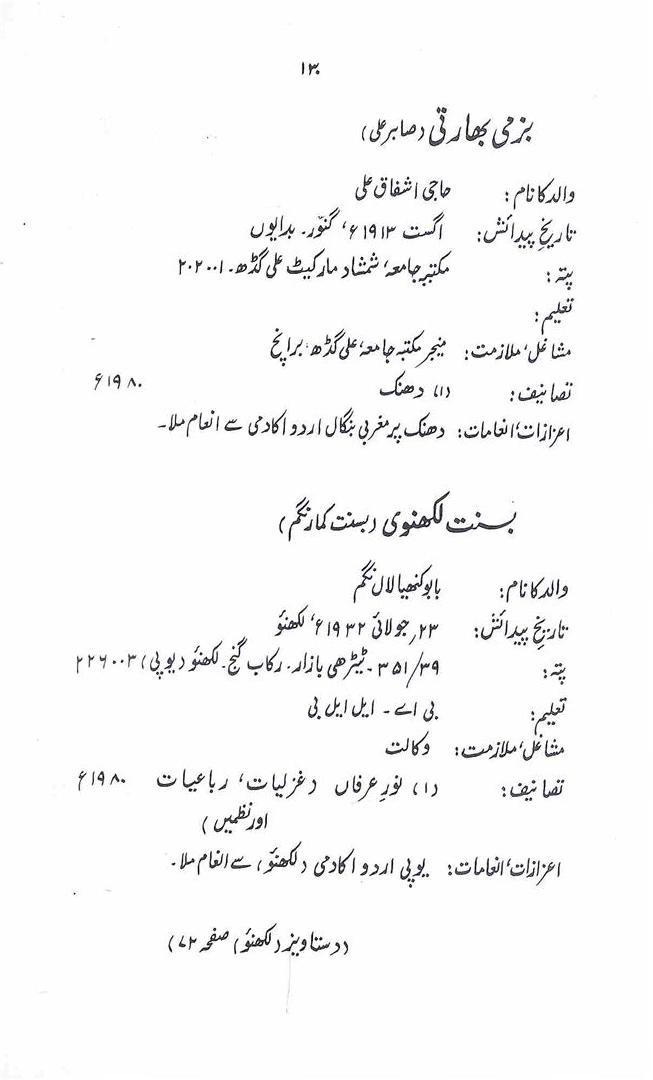 ۱۳۰
بزمی بھارتی (صابر علی)
والد کا نام: حاجی اشفاق علی
تاریخ پیدائش: اگست ۱۹۱۳ء، گنور۔ بدایوں
پتہ: مکتبہ جامعہ، شمشاد مارکیٹ علی گڈھ۔ ۲۰۲۰۰۱
تعلیم:
مشاغل، ملازمت: منیجر مکتبہ جامعہ، علی گڈھ برانچ
تصانیف: (۱) دھنک ۱۹۸۰ء
اعزازات، انعامات: دھنک پر مغربی بنگال اردو اکادمی سے انعام ملا۔
بسنت لکھنوی (بسنت کمار نگم)
والد کا نام: بابو کنھیا لال نگم
تاریخ پیدائش: ۲۳ر جولائی ۱۹۳۲ء، لکھنؤ
پتہ: ۳۵۱/۳۹۔ ٹیڑھی بازار۔ رکاب گنج۔ لکھنؤ (یوپی) ۲۲۶۰۰۳
تعلیم: بی اے۔ ایل ایل بی
مشاغل، ملازمت: وکالت
تصانیف: (۱) نورِ عرفاں (غزلیات، رباعیات ۱۹۸۰ء
اور نظمیں)
اعزازات، انعامات: یوپی اردو اکادمی (لکھنؤ) سے انعام ملا۔
(دستاویز (لکھنؤ) صفحہ ۷۲)